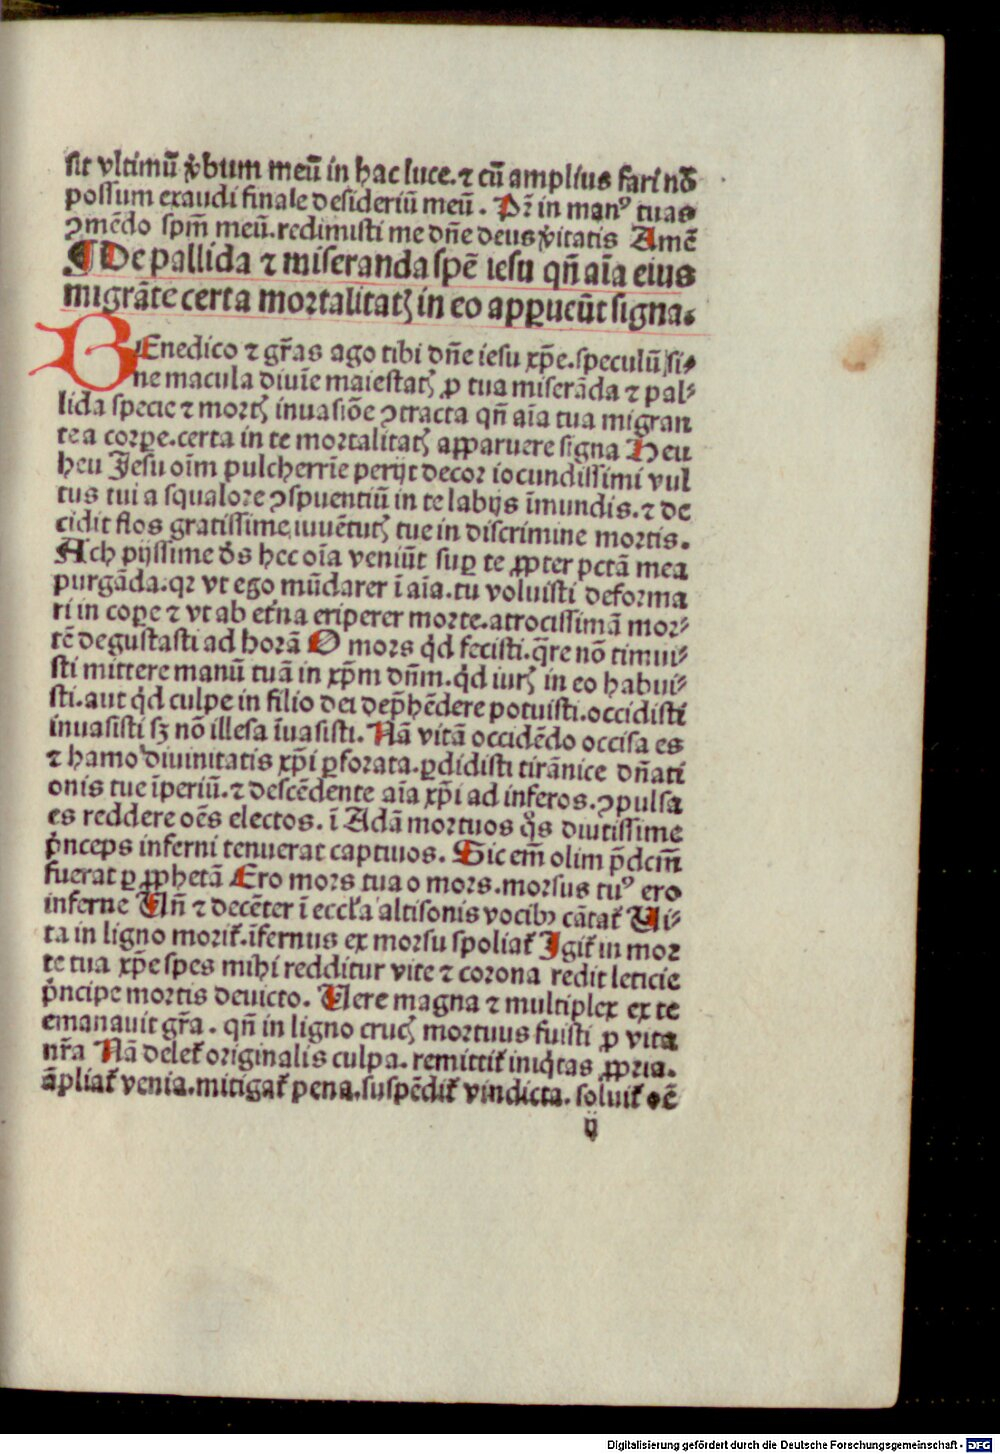 sit vltimū v̾bum meū in hac luce.⁊ cū amplius fari nō
possum exaudi finale desideriū meū. Pr̄ in manꝰ tuas
ꝯmēdo spm̄ meū.redimisti me dn̄e deus v̾itatis Amē
¶ De pallida ⁊ miseranda spē iesu qn̄ aīa eius
migrāte certa mortalitatꝭ in eo apꝑucūt signa.
BEnedico ⁊ gr̄as ago tibi dn̄e iesu xp̄e.speculū si⸗
ne macula diuīe maiestatꝭ ꝓ tua miserāda ⁊ pal⸗
lida specie ⁊ mortꝭ inuasiōe ꝯtracta qn̄ aīa tua migran
te a corꝑe.certa in te mortalitatꝭ apparuere signa Heu
heu Jesu oīm pulcherrīe perijt decor iocundissimi vul
tus tui a squalore ꝯspuentiū in te labijs īmundis.⁊ de
cidit flos gratissime iuuētutꝭ tue in discrimine mortis.
Ach pijssime dn̄s hec oīa veniūt suꝑ te ꝓpter pctā mea
purgāda.qr vt ego mūdarer ī aīa.tu voluisti deforma
ri in coꝑe ⁊ vt ab et̾na eriperer morte.atrocissimā mor⸗
tē degustasti ad horā O mors qͥd fecisti.qͣre nō timui⸗
sti mittere manū tuā in xp̄m dn̄m.qͥd iurꝭ in eo habui⸗
sti.aut qͥd culpe in filio dei dep̄hēdere potuisti.occidisti
inuasisti sꝫ nō illesa īuasisti. Nā vitā occidēdo occisa es
⁊ hamo diuinitatis xp̄i ꝑforata.ꝑdidisti tirānice dn̄ati
onis tue īperiū.⁊ descēdente aīa xp̄i ad inferos.ꝯpulsa
es reddere oēs electos. ī Adā mortuos qͦs diutissime
pͥnceps inferni tenuerat captiuos. Sic em̄ olim p̄dcm̄
fuerat ꝑ ꝓphetā Ero mors tua o mors.morsus tuꝰ ero
inferne Vn̄ ⁊ decēter ī eccl̄a altisonis vocibꝫ cātat̾ Vi⸗
ta in ligno morit̾.īfernus ex morsu spoliat̾ Igit̾ in mor
te tua xp̄e spes mihi redditur vite ⁊ corona redit leticie
pͥncipe mortis deuicto. Vere magna ⁊ multiplex ex te
emanauit gr̄a. qn̄ in ligno crucꝭ mortuus fuisti ꝓ vita
nr̄a Nā delet̾ originalis culpa. remittit̾ iniqͥtas ꝓpria.
āpliat̾ venia.mitigat̾ pena.suspēdit̾ vindicta. soluit̾ oē
ij
Digitalisierung gefördert durch die Deutsche Forschungsgemeinschaft - DFG